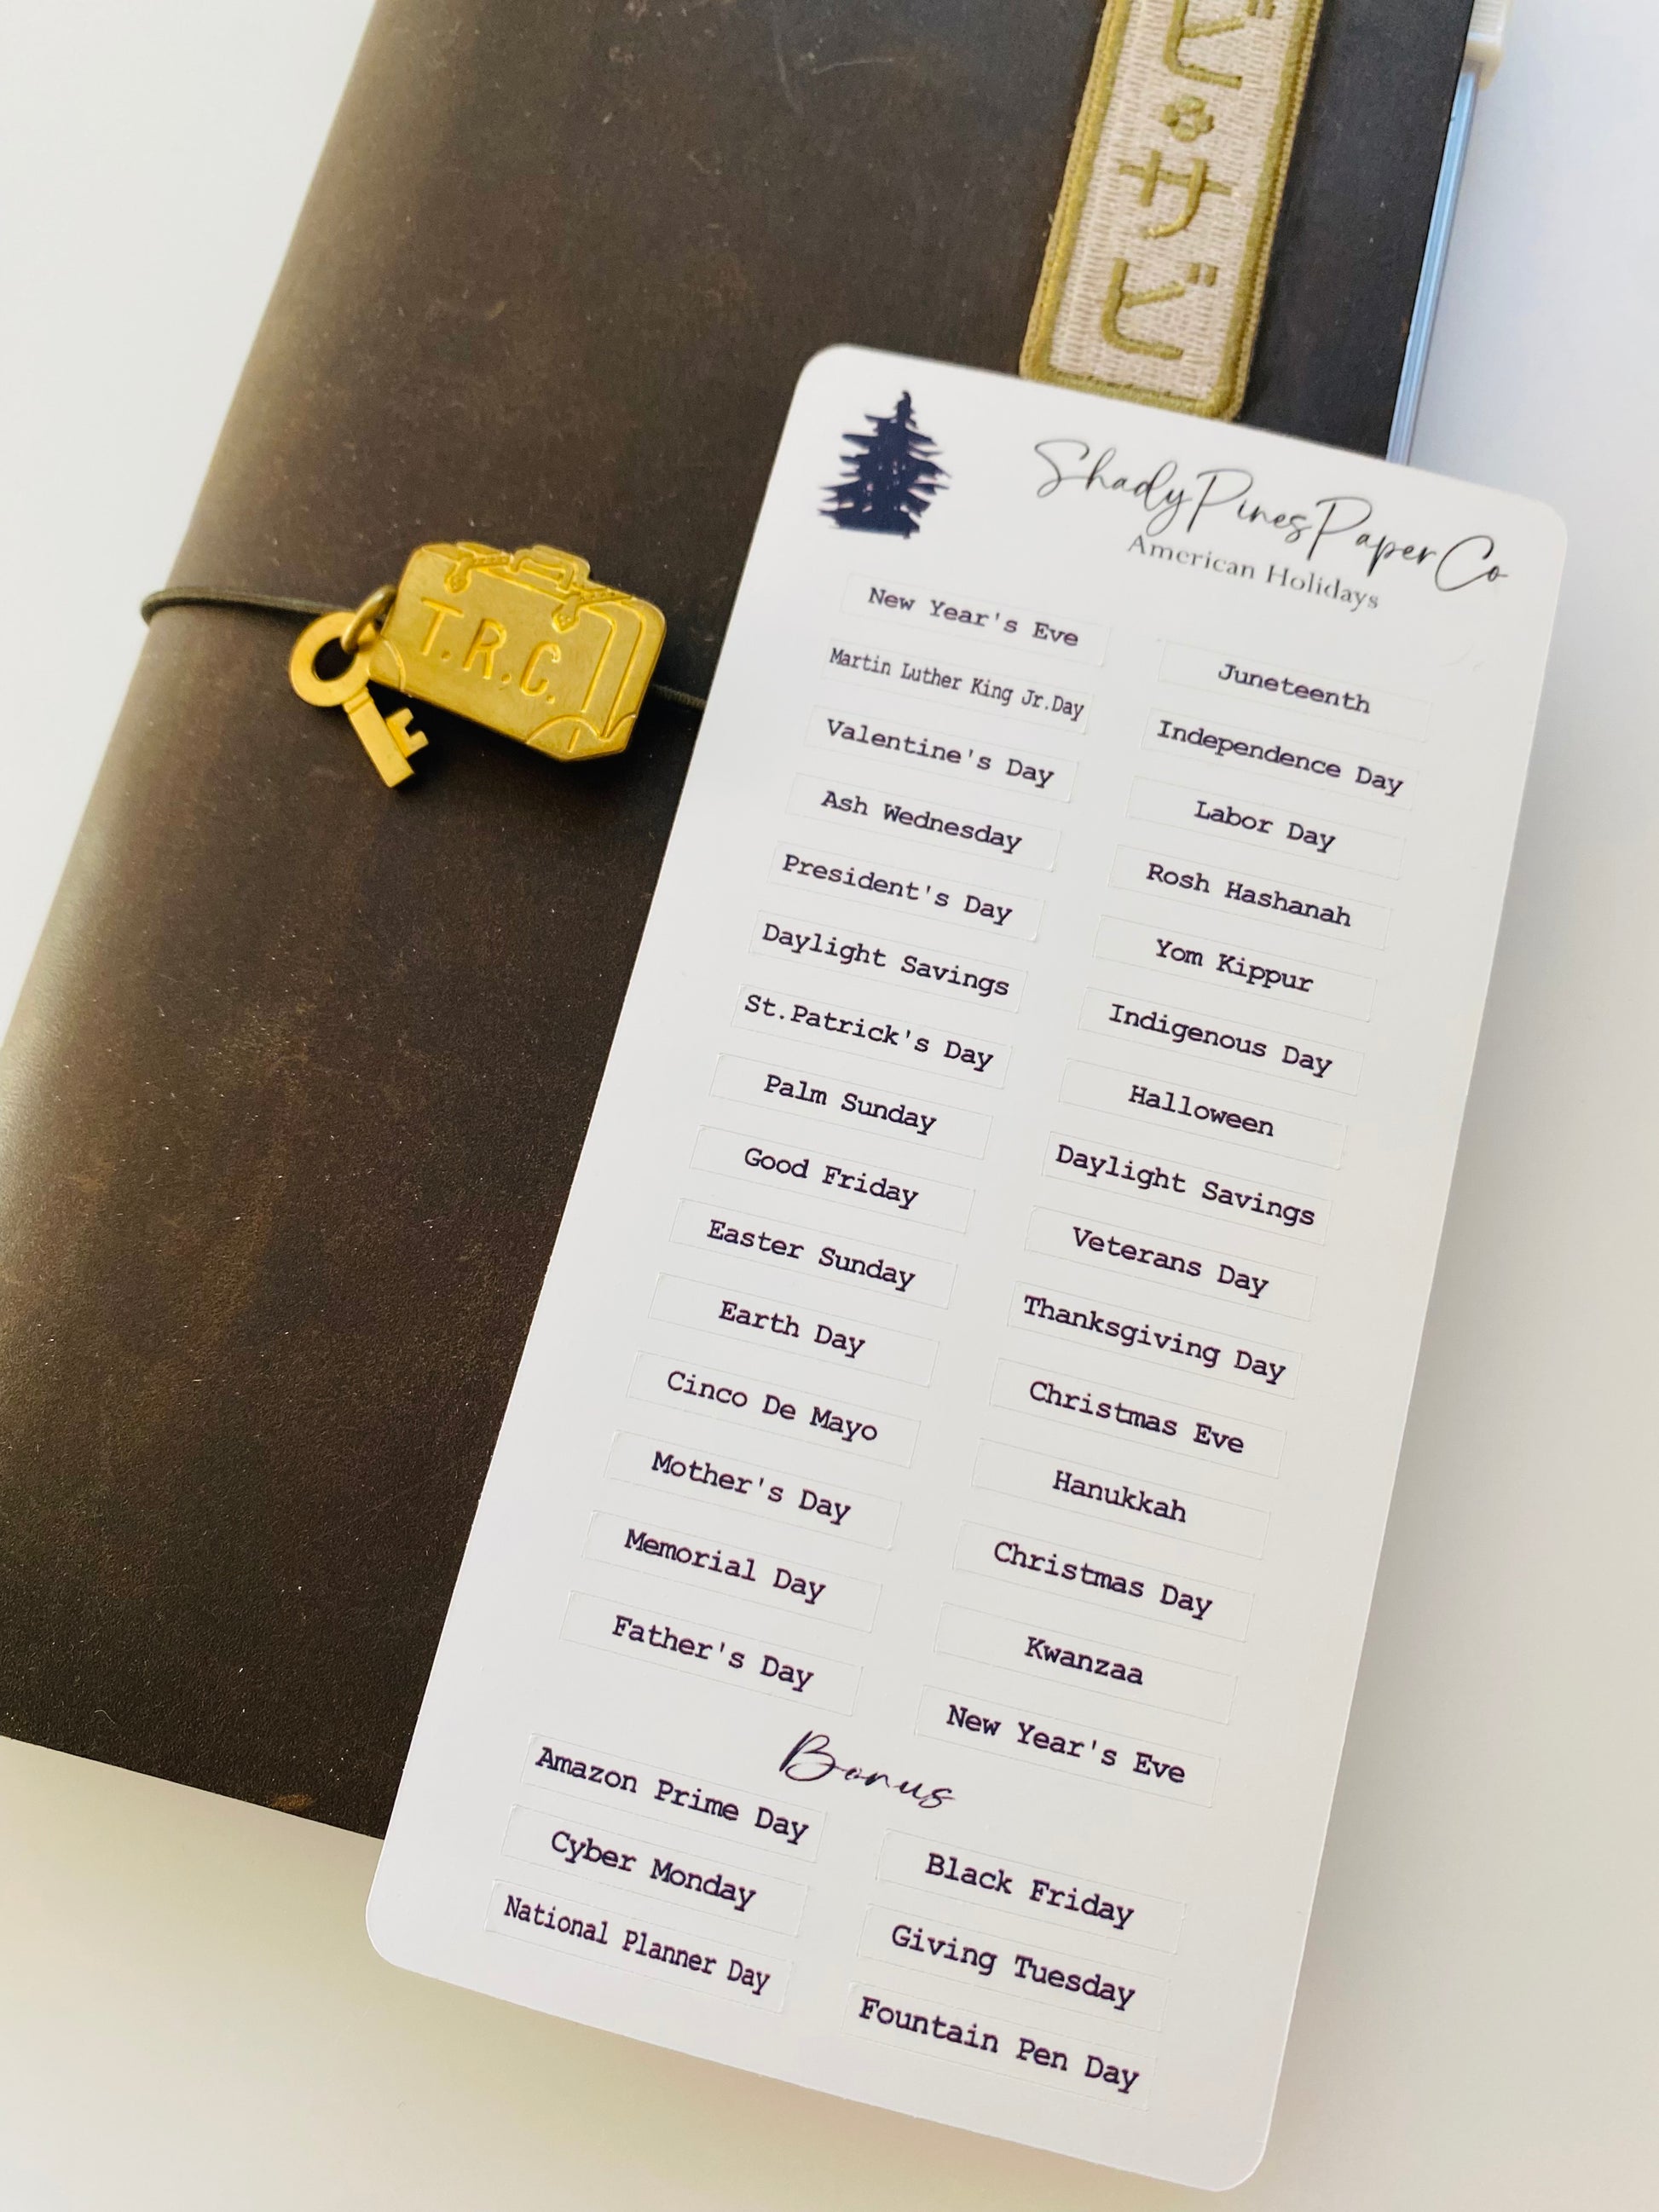 ビ・サビ
T.R.C.
ShadyPinesPaperCo
American Holidays
New Year's Eve
Martin Luther King Jr.Day
Valentine's Day
Ash Wednesday
President's Day
Daylight Savings
St.Patrick's Day
Palm Sunday
Good Friday
Easter Sunday
Earth Day
Cinco De Mayo
Mother's Day
Memorial Day
Father's Day
Juneteenth
Independence Day
Labor Day
Rosh Hashanah
Yom Kippur
Indigenous Day
Halloween
Daylight Savings
Veterans Day
Thanksgiving Day
Christmas Eve
Hanukkah
Christmas Day
Kwanzaa
New Year's Eve
Bonus
Amazon Prime Day
Cyber Monday
National Planner Day
Black Friday
Giving Tuesday
Fountain Pen Day